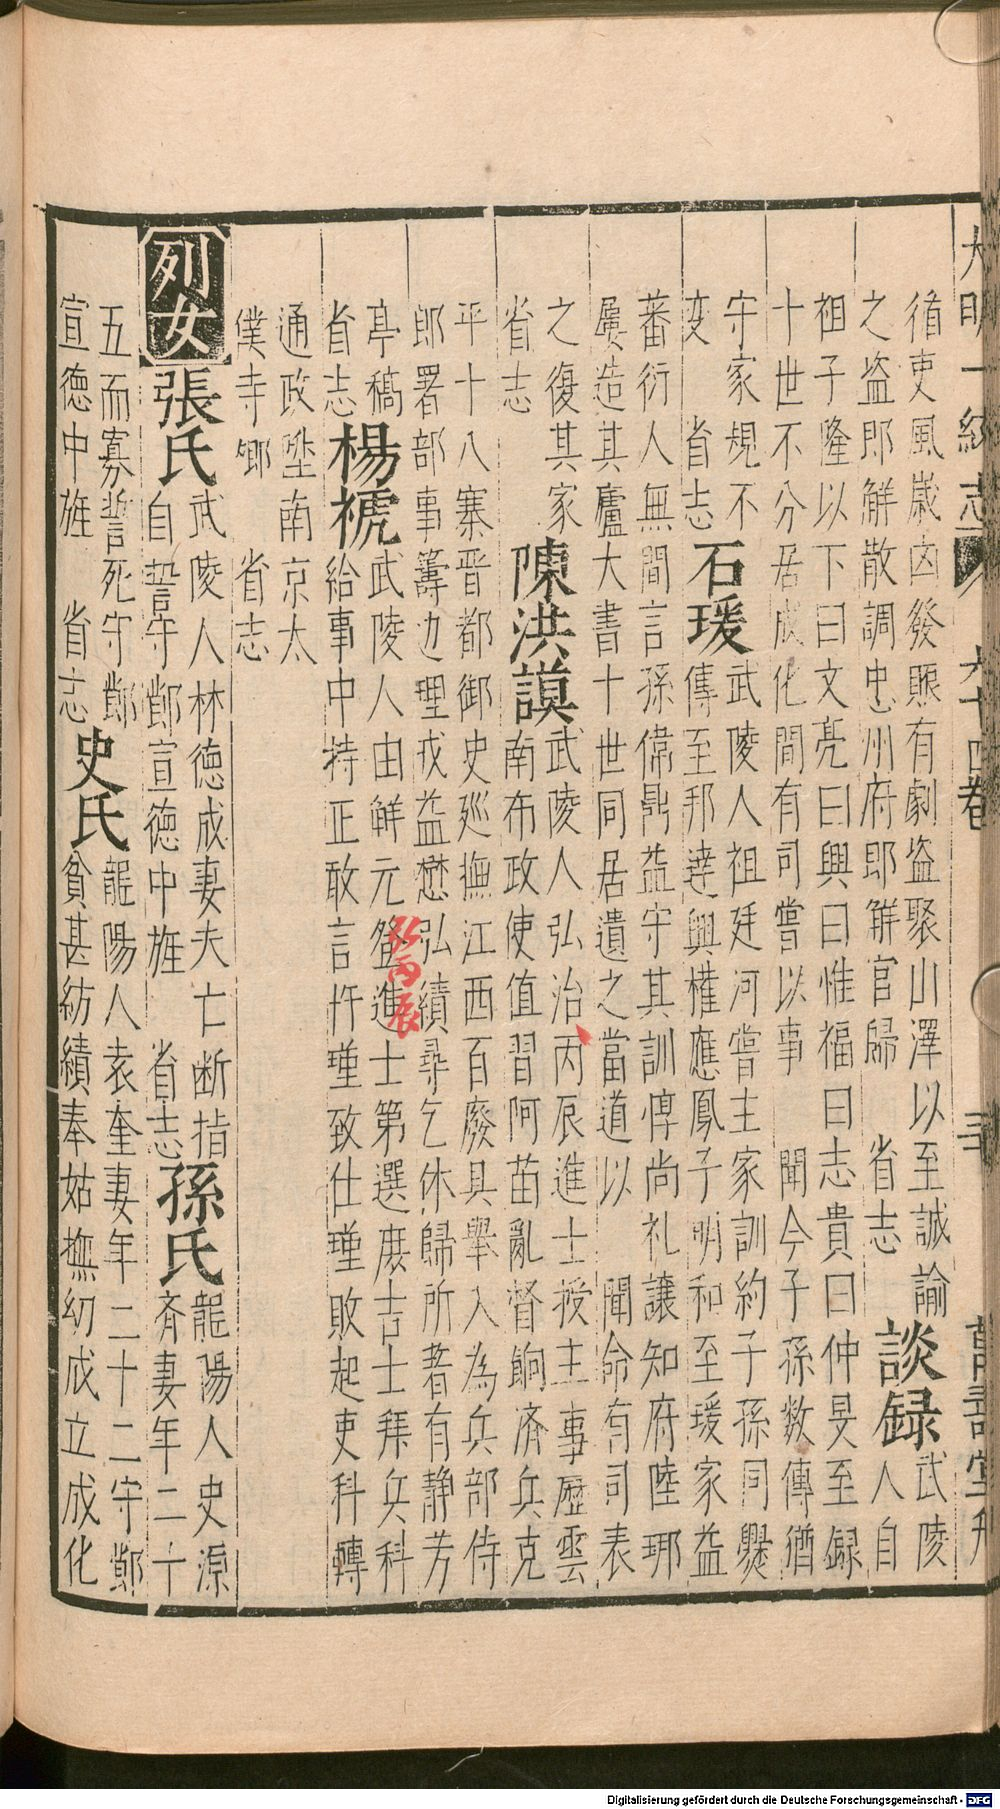 大明一統志 六十四卷
循吏風歲凶發賑有劇盜聚山澤以至誠諭
之盜即解散調忠州府即解官歸 省志
談録
武陵
人自
祖子隆以下曰文亮曰興曰惟福曰志貴曰仲旻至録
十世不分居成化間有司嘗以事 聞今子孫数傳猶
守家規不
变 省志
石瑗
武陵人祖廷河嘗主家訓約子孫同爨
傳至邦達興權應鳳子明和至瑗家益
蕃衍人無間言孫偉鼎益守其訓惇尚礼讓知府陸琊
屢造其廬大書十世同居遺之當道以 聞命有司表
之復其家
省志
陳洪謨
武陵人弘治丙辰進士授主事歷雲
南布政使值習阿苗亂督餉済兵克
平十八寨晋都御史巡撫江西百廢具舉入為兵部侍
郎署部事籌边理戎益懋弘績尋乞休歸所著有静芳
亭稿
省志
楊褫
武陵人由解元登進士第選庶吉士拜兵科
給事中持正敢言忤瑾致仕瑾敗起吏科轉
通政陞南京太
僕寺卿 省志
弘丙辰
列女
張氏
武陵人林德成妻夫亡断指
自誓守鄭宣德中旌 省志
孫氏
龍陽人史源
済妻年二十
五而寡誓死守鄭
宣德中旌 省志
史氏
龍陽人袁奎妻年二十二守鄭
貧甚紡績奉姑撫幼成立成化
Digitalisierung gefördert durch die Deutsche Forschungsgemeinschaft - DFG